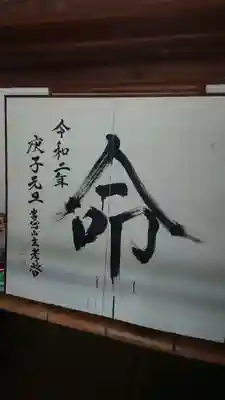 命
令和二年
庚子元旦